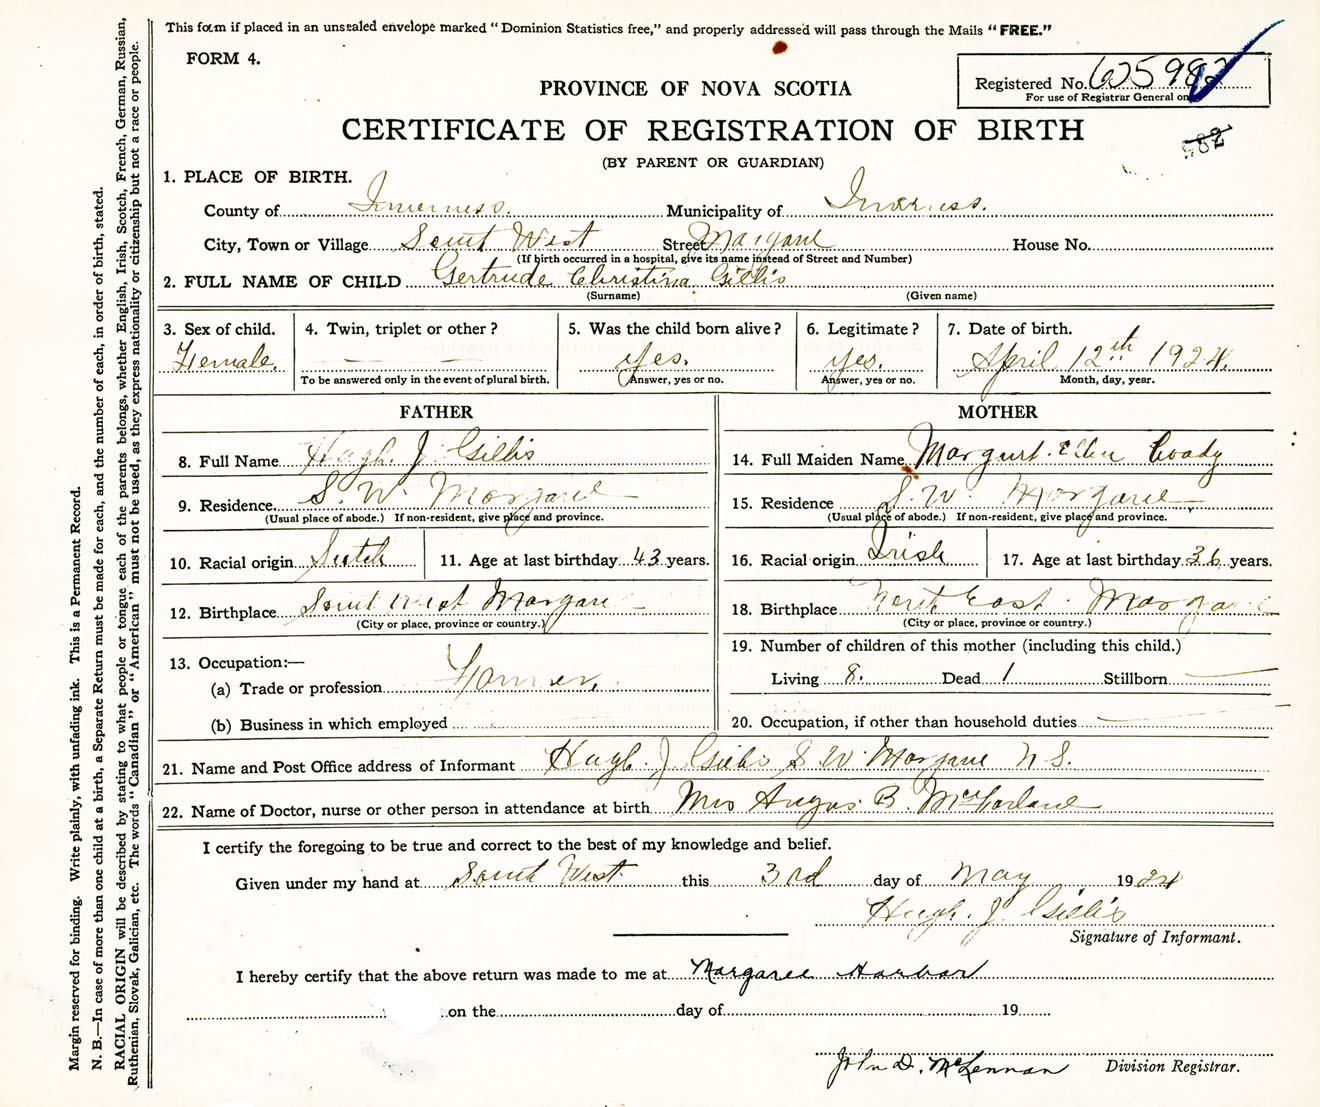 This form if placed in an unsealed envelope marked "Dominion Statistics free," and properly addressed will pass through the Mails "FREE."
FORM 4.
Registered No. 625982
For use of Registrar General on
PROVINCE OF NOVA SCOTIA
CERTIFICATE OF REGISTRATION OF BIRTH
982
(BY PARENT OR GUARDIAN)
1. PLACE OF BIRTH.
County of Inverness. Municipality of Inverness.
City, Town or Village Sout West Street Margaree House No.
(If birth occurred in a hospital, give its name instead of Street and Number)
2. FULL NAME OF CHILD Gertrude Christina Gillis
(Surname) (Given name)
3. Sex of child. 4. Twin, triplet or other? 5. Was the child born alive? 6. Legitimate? 7. Date of birth.
Female. — — yes. yes. April 12th 1924.
To be answered only in the event of plural birth. Answer, yes or no. Answer, yes or no. Month, day, year.
FATHER MOTHER
8. Full Name Hugh. J Gillis 14. Full Maiden Name Margaret Ellen Coady
9. Residence S. W. Margaree 15. Residence S. W. Margaree
(Usual place of abode.) If non-resident, give place and province. (Usual place of abode.) If non-resident, give place and province.
10. Racial origin Scotch 11. Age at last birthday 43 years. 16. Racial origin Irish 17. Age at last birthday 36 years.
12. Birthplace Sout West Margaree 18. Birthplace North East Margaree
(City or place, province or country.) (City or place, province or country.)
13. Occupation:— 19. Number of children of this mother (including this child.)
(a) Trade or profession Farmer. Living 8. Dead 1 Stillborn —
(b) Business in which employed 20. Occupation, if other than household duties —
21. Name and Post Office address of Informant Hugh. J Gillis S W Margaree N S.
22. Name of Doctor, nurse or other person in attendance at birth Mrs Angus B. McFarlane
I certify the foregoing to be true and correct to the best of my knowledge and belief.
Given under my hand at Sout West this 3rd day of May 1924
Hugh. J. Gillis
Signature of Informant.
I hereby certify that the above return was made to me at Margaree Harbor
on the day of 19
John D. McLennan Division Registrar.
Margin reserved for binding. Write plainly, with unfading ink. This is a Permanent Record.
N. B.—In case of more than one child at a birth, a Separate Return must be made for each, and the number of each, in order of birth, stated.
RACIAL ORIGIN will be described by stating to what people or tongue each of the parents belongs, whether English, Irish, Scotch, French, German, Russian,
Ruthenian, Slovak, Galician, etc. The words "Canadian" or "American" must not be used, as they express nationality or citizenship but not a race or people.